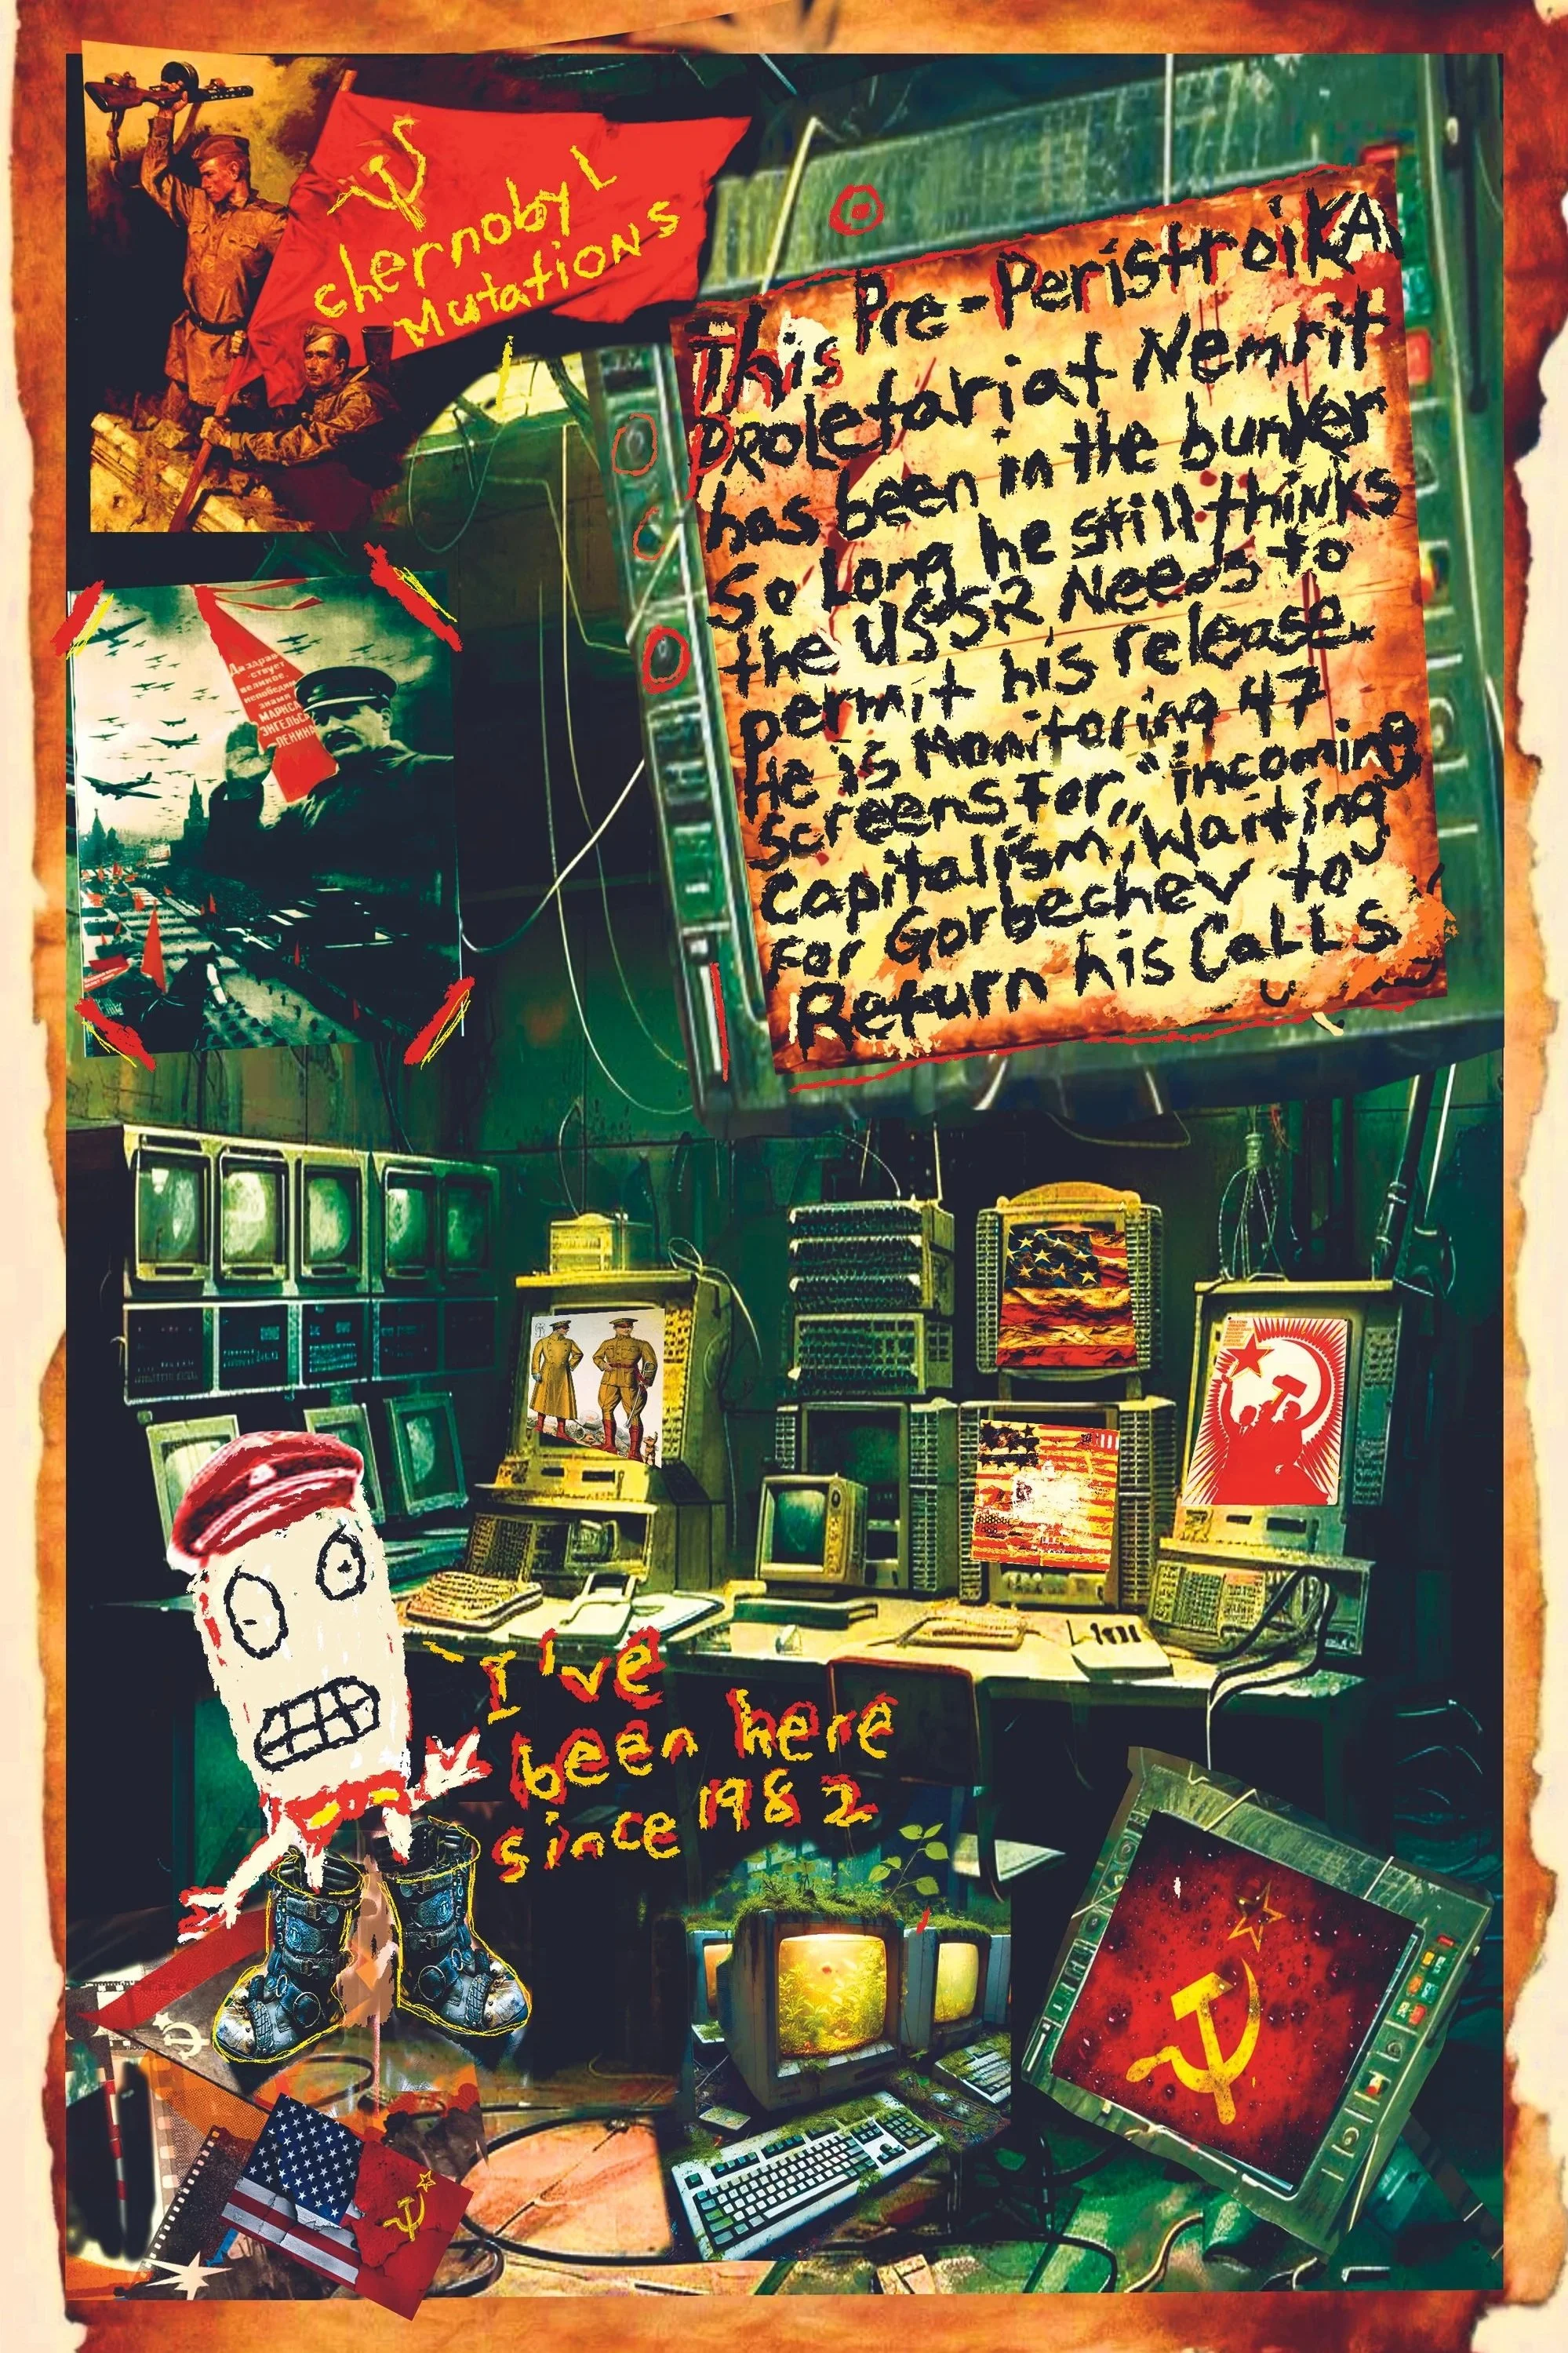 chernobyl
Mutations
Pre-PeristroiKA
This
PROletariat Nemrit
has been in the bunker
So Long he still thinks
the USSR Needs to
permit his release
He is Monitoring 47
screens For,, "incoming
Capitalism, Waiting
For Gorbechev to
Return his CaLLS
Да здрав-
ствует
великое,
непобедимое
знамя
МАРКСА
ЭНГЕЛЬСА
-ЛЕНИНА
"I've
been here
since 1982